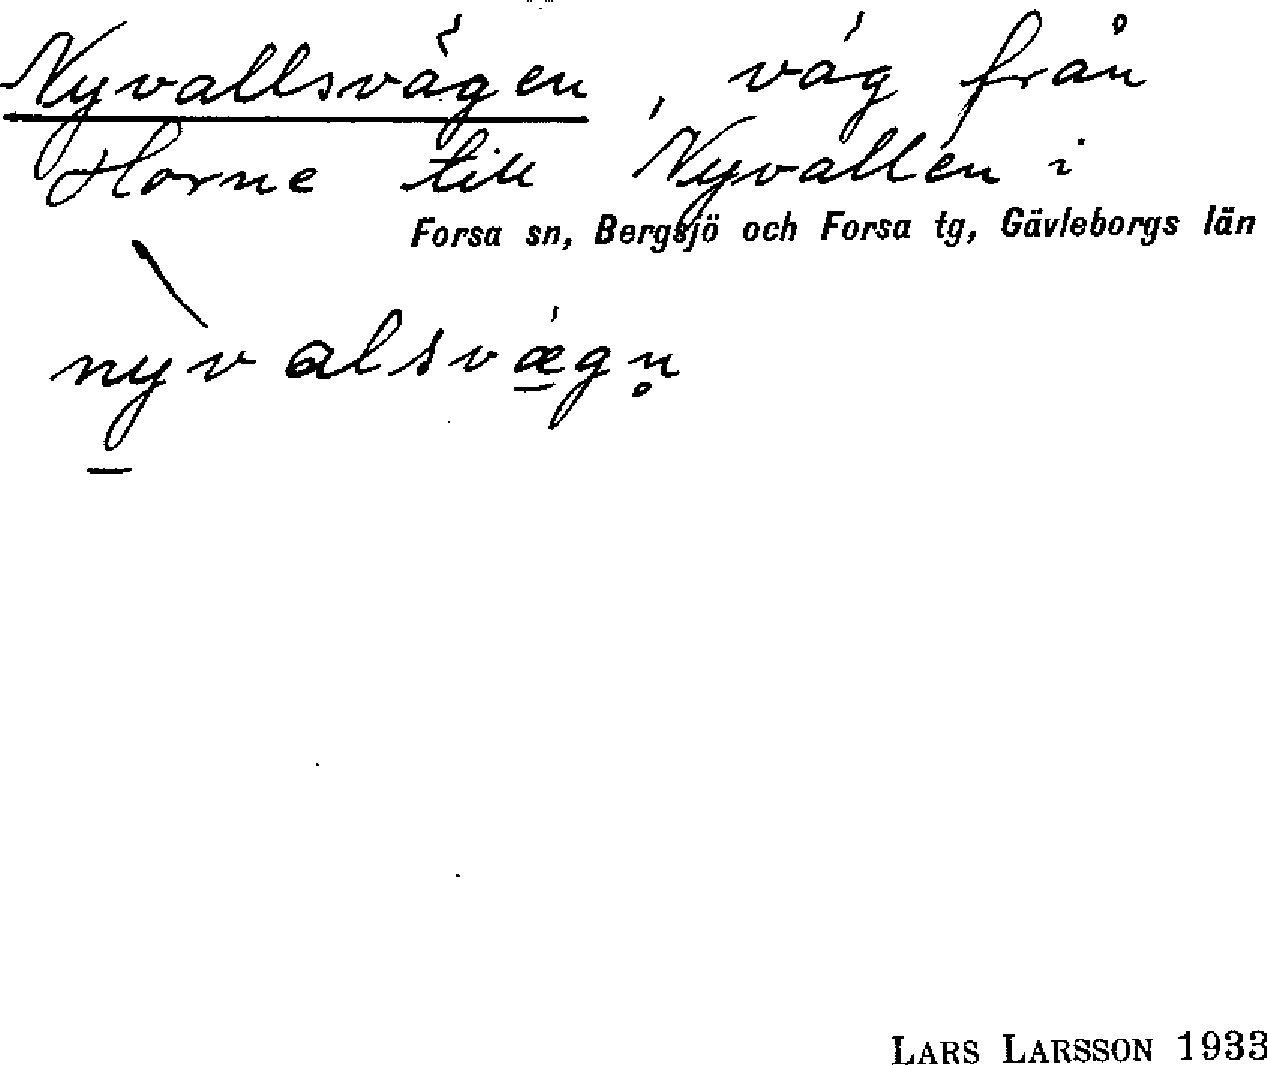 Nyvallsvägen, väg från
Horne till Nyvallen i
Forsa sn, Bergsjö och Forsa tg, Gävleborgs län
nỳ̠valsvǽ̠gn̥
LARS LARSSON 1933